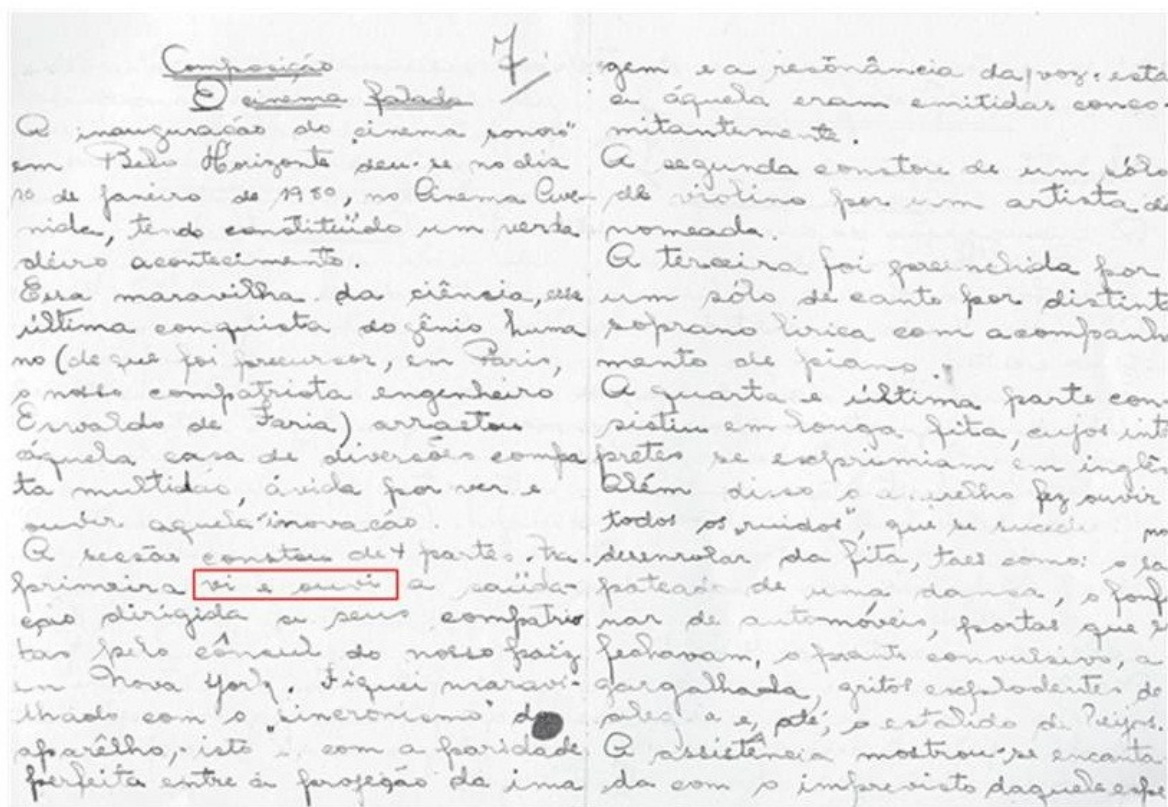 Composição
7
O cinema falado
A inauguração do cinema "sonoro"
em Belo Horizonte deu-se no dia
10 de janeiro de 1930, no Cinema Ave-
nida, tendo constituïdo um verda
deiro acontecimento.
Essa maravilha da ciência, essa
última conquista do gênio huma
no (de que foi precursor, em Paris,
o nosso compatriota engenheiro
de Faria) arrastou
àquela casa de diversões compa
ta multidão, ávida por ver e
ouvir aquela inovação.
A secsão constou de 4 partes. Na
primeira vi e ouvi a saüda-
ção dirigida a seus compatrio
tas pelo cônsul do nosso paiz
em Nova York. Fiquei maravi-
lhado com o "sincronismo" do
aparêlho, isto é, com a paridade
perfeita entre a projeção da ima
gem e a resonância da voz: esta
e áquela eram emitidas conco-
mitantemente.
A segunda constou de um sólo
de violino por um artista de
nomeada.
A terceira foi preenchida por
um sólo de canto por distinta
soprano lirica com acompanha
mento de piano.
A quarta e última parte con
sistiu em longa fita, cujos inter
pretes se exprimiam em inglês
Além disso o aparelho fez ouvir
todos os "ruidos", que se sucede no
desenrolar da fita, taes como: o sa
pateado de uma dansa, o fonfo
nar de automóveis, portas que se
fechavam, o pranto convulsivo, a
gargalhada, gritos explodentes de
alegria e, até, o estalido de beijos.
A assistência mostrou-se encanta
da com o imprevisto daquele espe